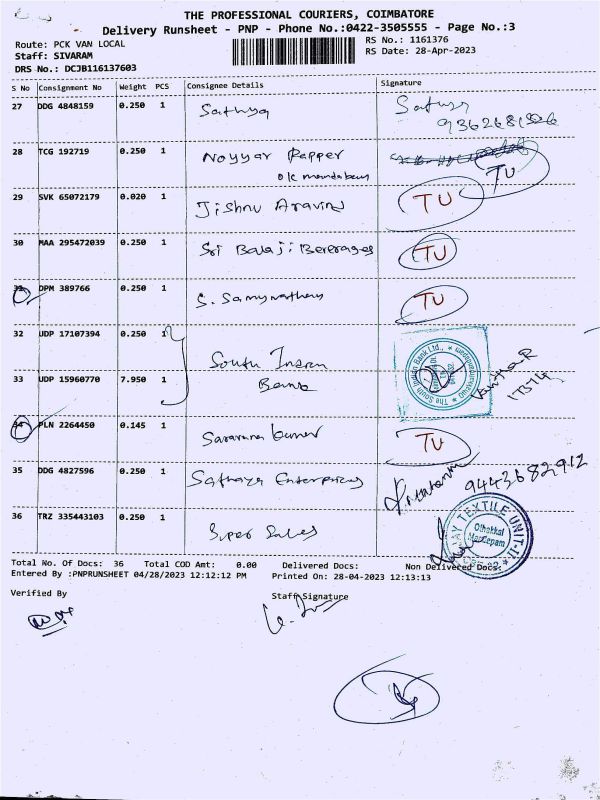 THE PROFESSIONAL COURIERS, COIMBATORE
Delivery Runsheet - PNP - Phone No.:0422-3505555 - Page No.:3
Route: PCK VAN LOCAL
RS No.: 1161376
Staff: SIVARAM
RS Date: 28-Apr-2023
DRS No.: DCJB116137603
S No Consignment No Weight PCS Consignee Details Signature
27 DDG 4848159 0.250 1 Sathya
28 TCG 192719 0.250 1 Noyyar Papper TU
29 SVK 65072179 0.020 1 Jishnu Aravind TU
30 MAA 295472039 0.250 1 Sri Balaji Bererages TU
DPM 389766 0.250 1 TU
32 UDP 17107394 0.250 1
South Indian Bank
33 UDP 15960770 7.950 1
34 PLN 2264450 0.145 1 TU
35 DDG 4827596 0.250 1 Sathaya Enterprices 9443682912
36 TRZ 335443103 0.250 1 Super Sales
TEXTILE UNIT-II
Total No. Of Docs: 36 Total COD Amt: 0.00 Delivered Docs: Non Delivered Docs:
Entered By :PNPRUNSHEET 04/28/2023 12:12:12 PM Printed On: 28-04-2023 12:13:13
Verified By Staff Signature